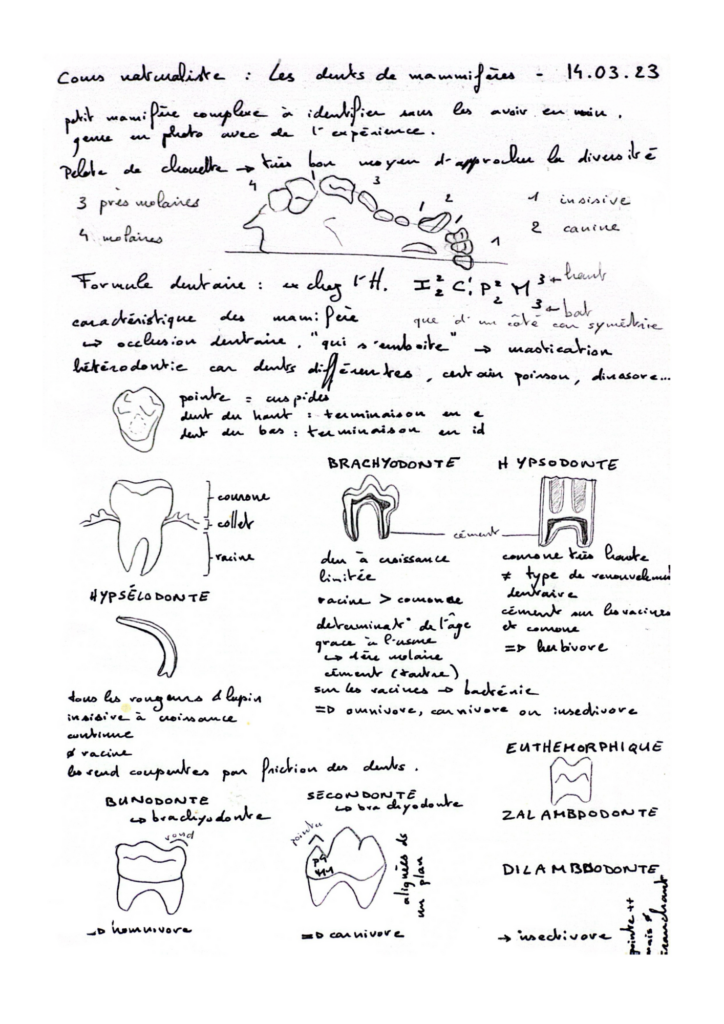 Cours naturaliste : Les dents de mammifères - 14.03.23
petit mamifère complexe à identifier sans les avoir en main,
genre en photo avec de l'expérience.
Pelote de chouette → très bon moyen d'approcher la diversité
3 près molaires
4 molaires
4
3
2
1
1 insisive
2 canine
Formule dentaire : ex chez l'H. I 2/2 C 1/1 P 2/2 M 3/3
← haut
← bat
que d'un côté car symétrie
caractéristique des mamifère
↳ occlusion dentaire, "qui s'emboite" → mastication
hétérodontie car dents différentes, certain poisson, dinasore...
pointe = cuspides
dent du haut : terminaison en e
dent du bas : terminaison en id
couronne
collet
racine
BRACHYODONTE
HYPSODONTE
cément
den à croissance
limitée
racine > couronne
determinat° de l'âge
grace à l'usure
↳ 1ère molaire
cément (tartre)
sur les racines → bactérie
=> omnivore, carnivore ou insectivore
couronne très haute
≠ type de renouvelemen
dentaire
cément sur les racines
et couronne
=> herbivore
HYPSÉLODONTE
tous les rongeurs & lapin
insisive à croissance
continue
ø racine
les rend coupentes par friction des dents.
BUNODONTE
↳ brachyodonte
rond
→ homnivore
SECONDONTE
↳ brachyodonte
pointu
P4
M1
alignées ds
un plan
=> carnivore
EUTHEMORPHIQUE
ZALAMBDODONTE
DILAMBDODONTE
→ insectivore
pointe ++
mais ≠
tranchant